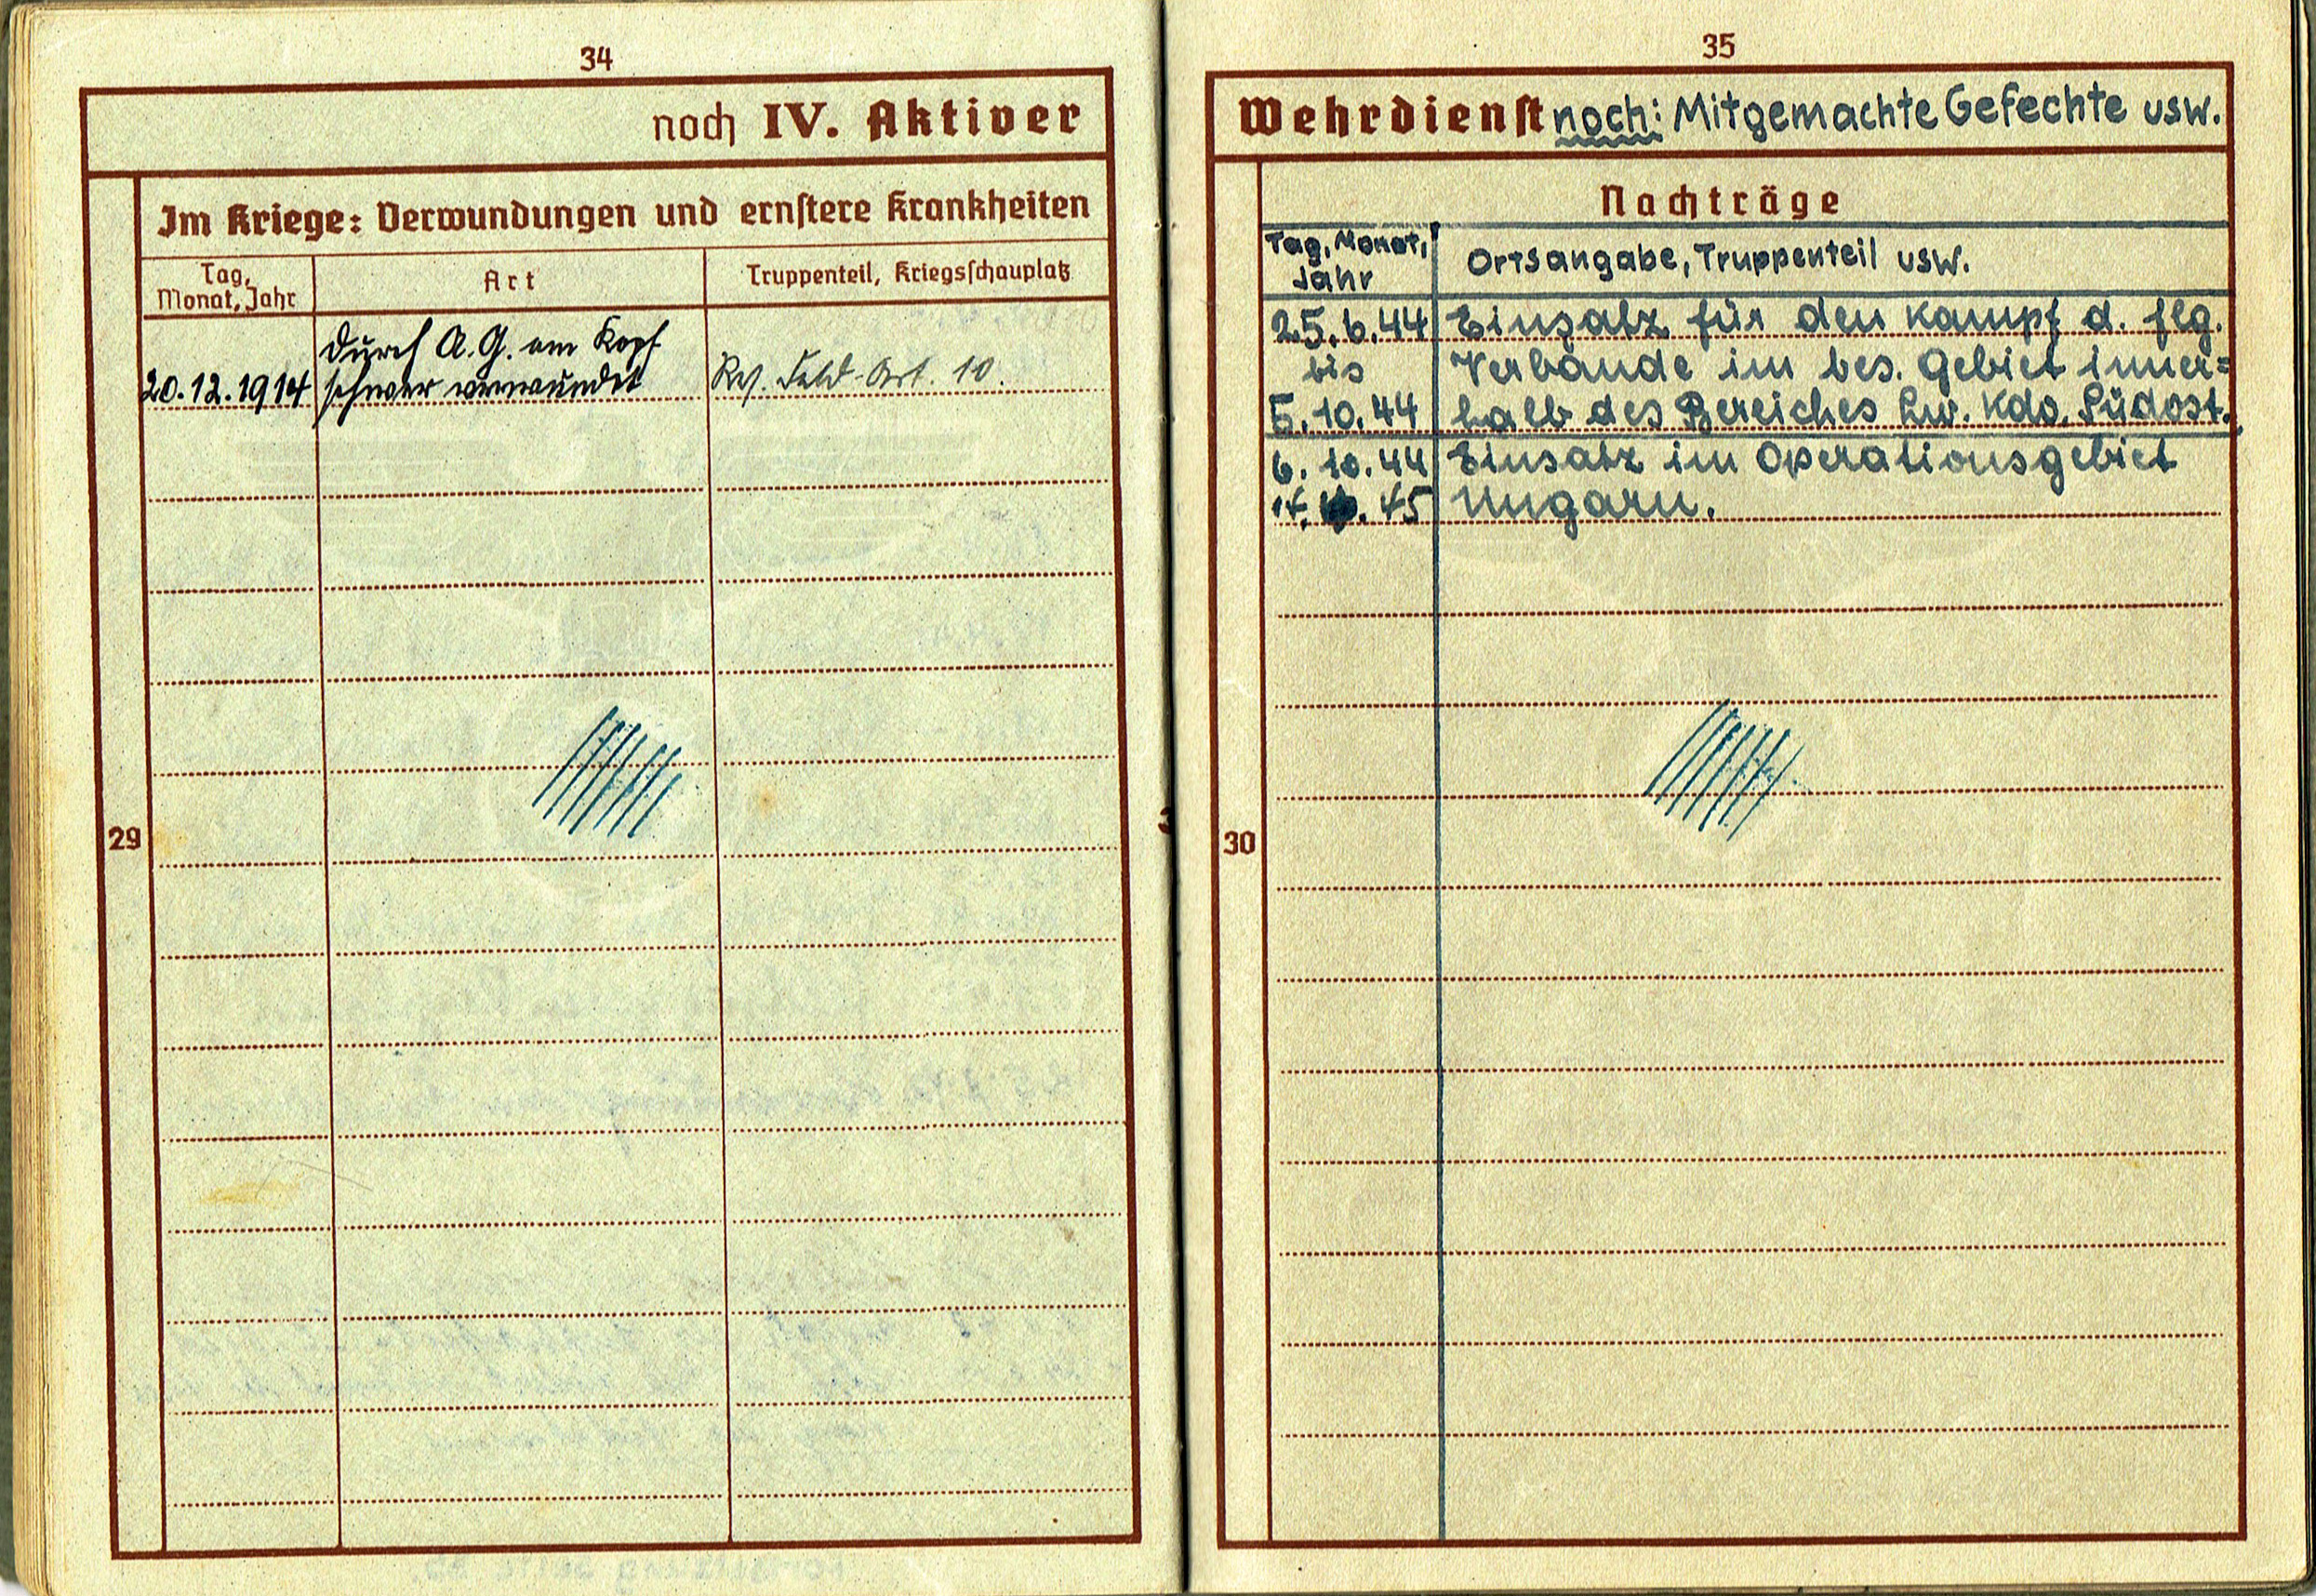 34
noch IV. Aktiver
Im Kriege: Verwundungen und ernstere Krankheiten
Tag,
Monat, Jahr
Art
Truppenteil, Kriegsschauplatz
durch A. G. am Kopf
20.12.1914 schwer verwundet
Res. Feld-Art. 10.
29
35
Wehrdienst noch: Mitgemachte Gefechte usw.
Nachträge
Tag, Monat,
Jahr
Ortsangabe, Truppenteil usw.
25.6.44 Einsatz für den Kampf d. flg.
bis Verbände im bes. Gebiet inner=
5.10.44 halb des Bereiches Lw. Kdo. Südost.
6.10.44 Einsatz im Operationsgebiet
45 Ungarn.
30